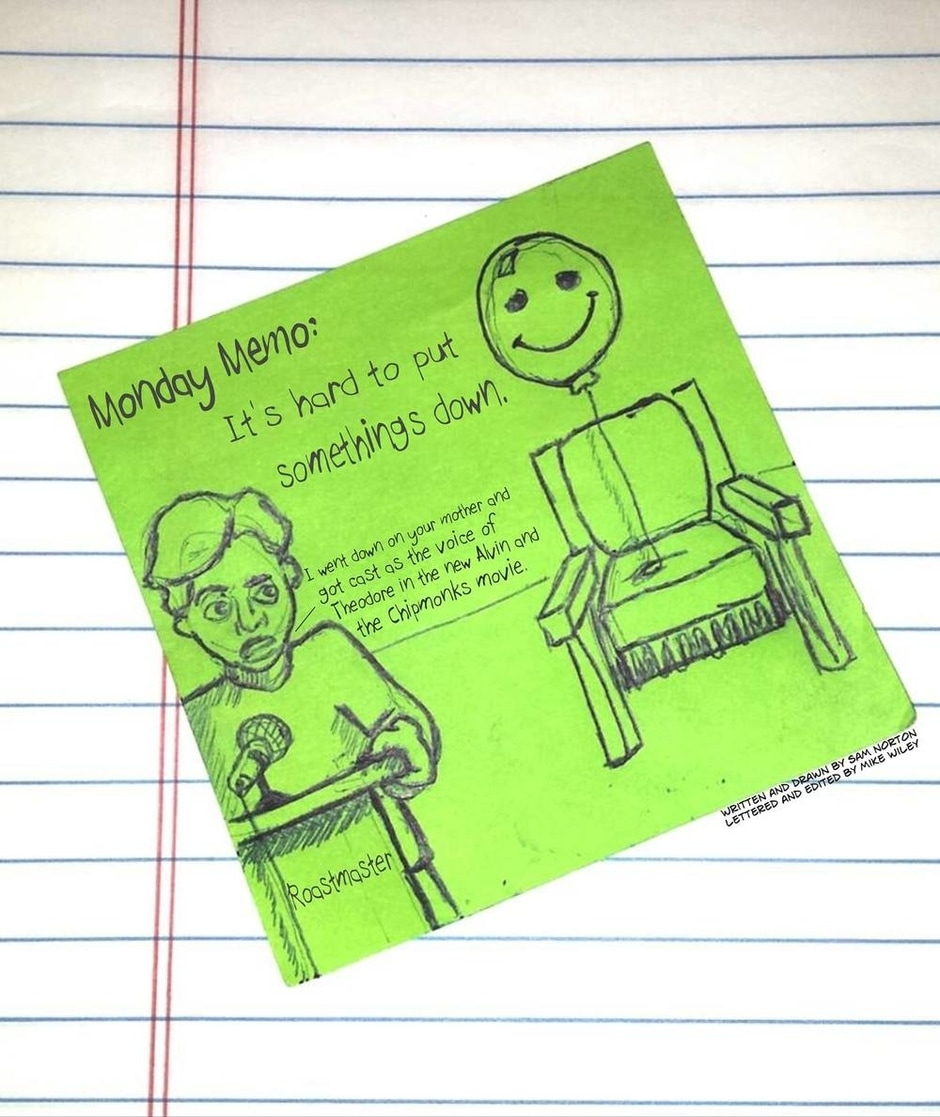 Monday Memo:
It's hard to put
somethings down.
I went down on your mother and
got cast as the voice of
Theodore in the new Alvin and
the Chipmonks movie.
Roastmaster
WRITTEN AND DRAWN BY SAM NORTON
LETTERED AND EDITED BY MIKE WILEY